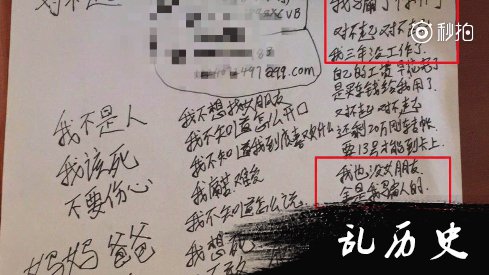 秒拍
对不起 对不
我三年没工作了
自己的工资
钱给我用了
对不起 对不起
还剩20万
要13号才能到卡上
我也没女朋友
全是我骗人的
497899.com
我不想找女朋友
我不知道怎么开口
我不知道我到底喜欢什么
我痛苦难受
我不知道怎么说
我想死
我不是人
我该死
不要伤心
妈妈 爸爸
乱历史